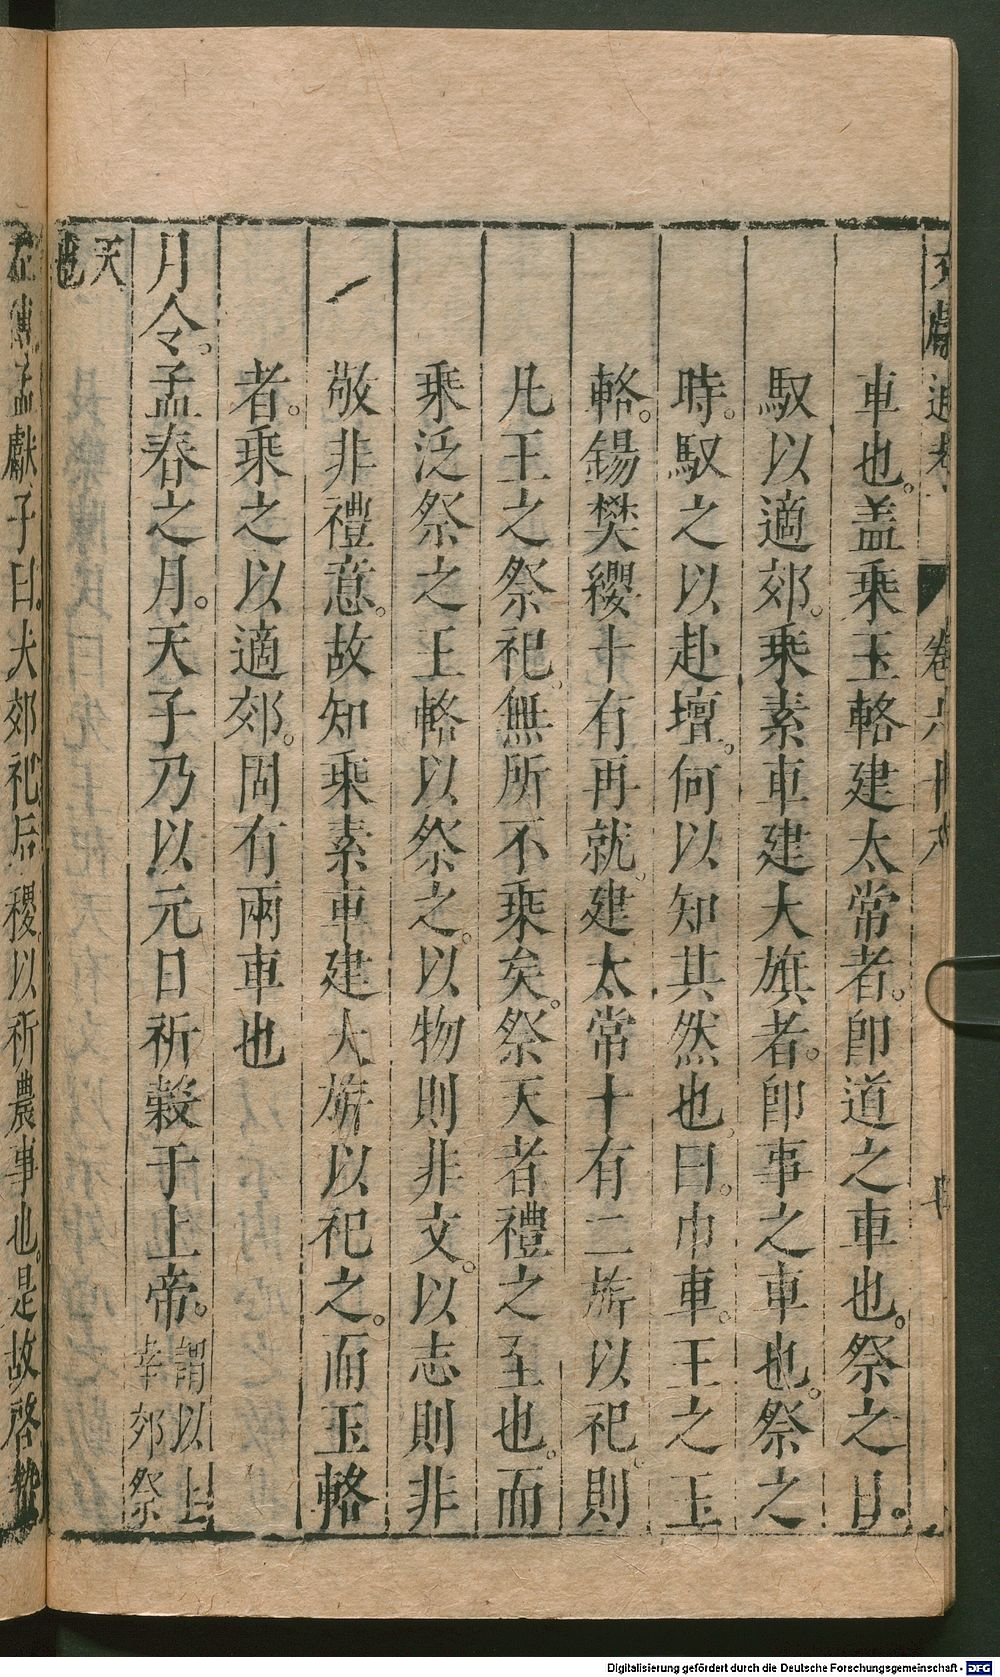 文獻通考 卷六十八
車也。盖乘玉輅建太常者。即道之車也。祭之日。
馭以適郊。乘素車建大旂者。即事之車也。祭之
時。馭之以赴壇。何以知其然也。曰。巾車。王之玉
輅。鍚樊纓十有再就。建太常十有二斿以祀。則
凡王之祭祀。無所不乘矣。祭天者禮之至也。而
乘泛祭之玉輅以祭之。以物則非文。以志則非
敬非禮意。故知乘素車建大旂以祀之。而玉輅
者。乘之以適郊。固有兩車也
月令。孟春之月。天子乃以元日祈穀于上帝。謂以上
辛郊祭
天
也
左傳孟獻子曰。夫郊祀后稷。以祈農事也。是故啓蟄
Digitalisierung gefördert durch die Deutsche Forschungsgemeinschaft - DFG